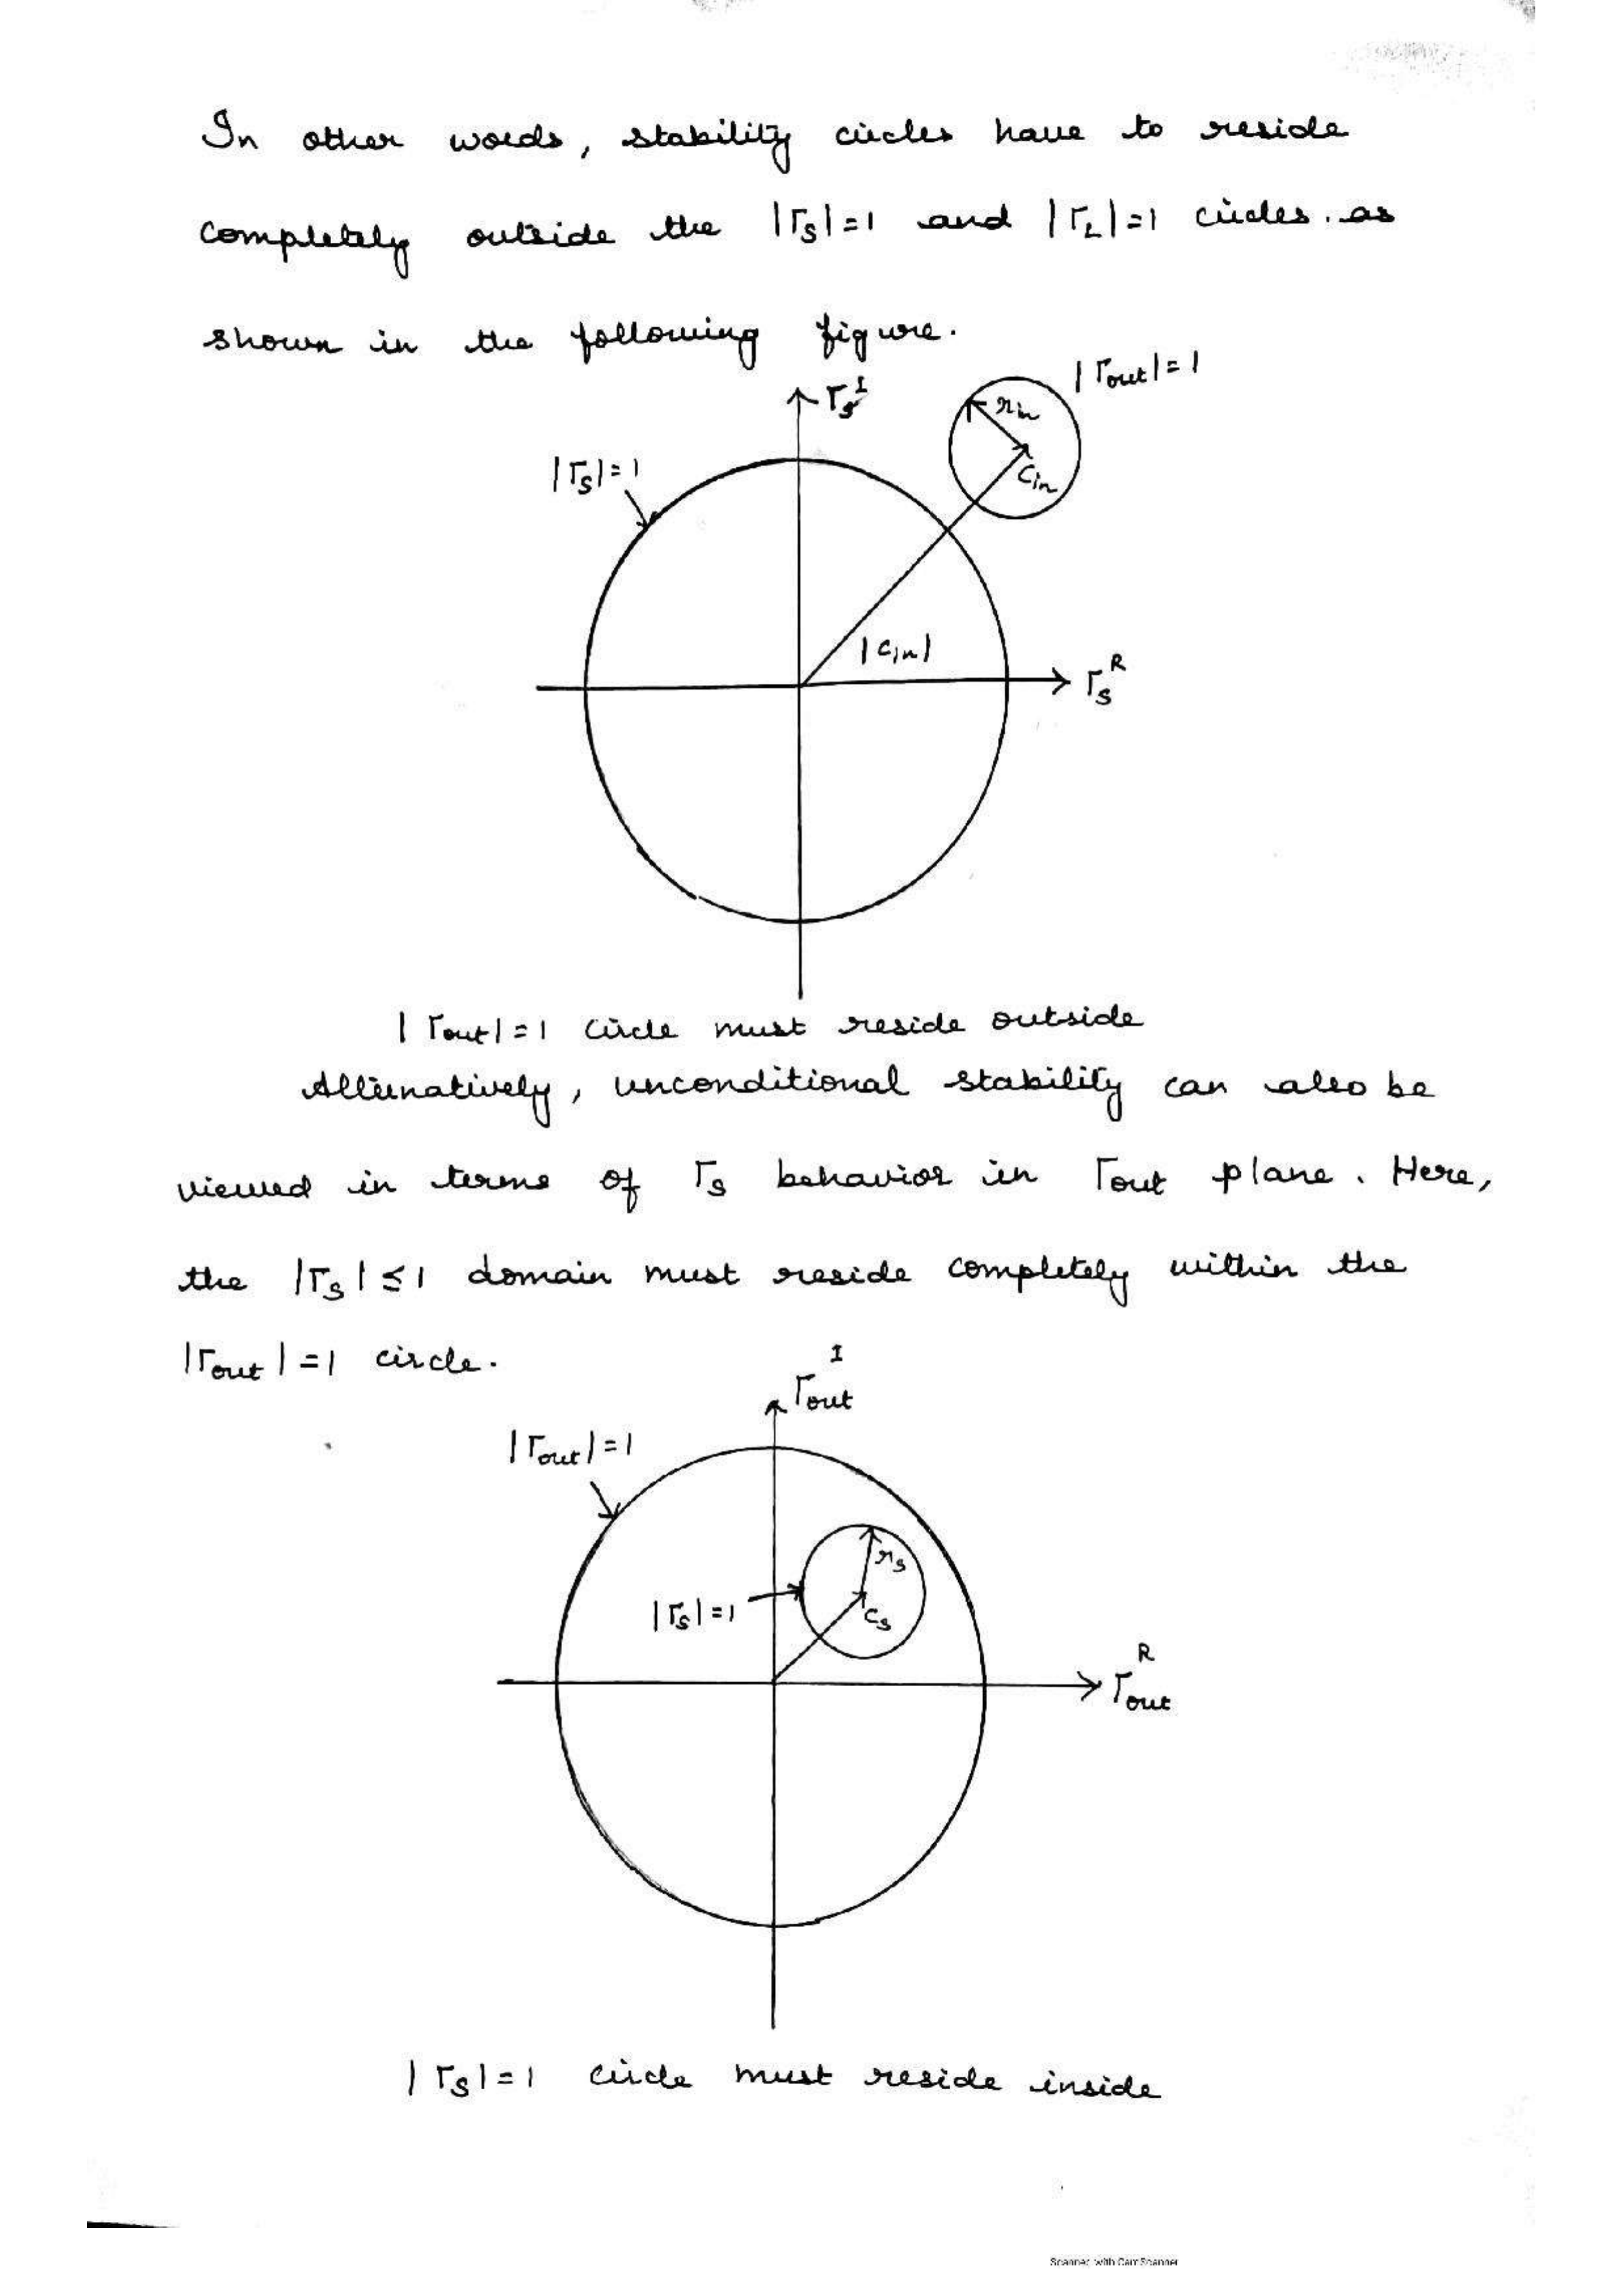 In other words, stability circles have to reside
completely outside the |Γs|=1 and |ΓL|=1 circles. as
shown in the following figure.
|Γout|=1
Γs^I
rin
|Γs|=1
Cin
|Cin|
Γs^R
|Γout|=1 circle must reside outside
Alternatively, unconditional stability can also be
viewed in terms of Γs behavior in Γout plane. Here,
the |Γs|≤1 domain must reside completely within the
|Γout|=1 circle.
Γout^I
|Γout|=1
rs
|Γs|=1
Cs
Γout^R
|Γs|=1 circle must reside inside
Scanned with CamScanner